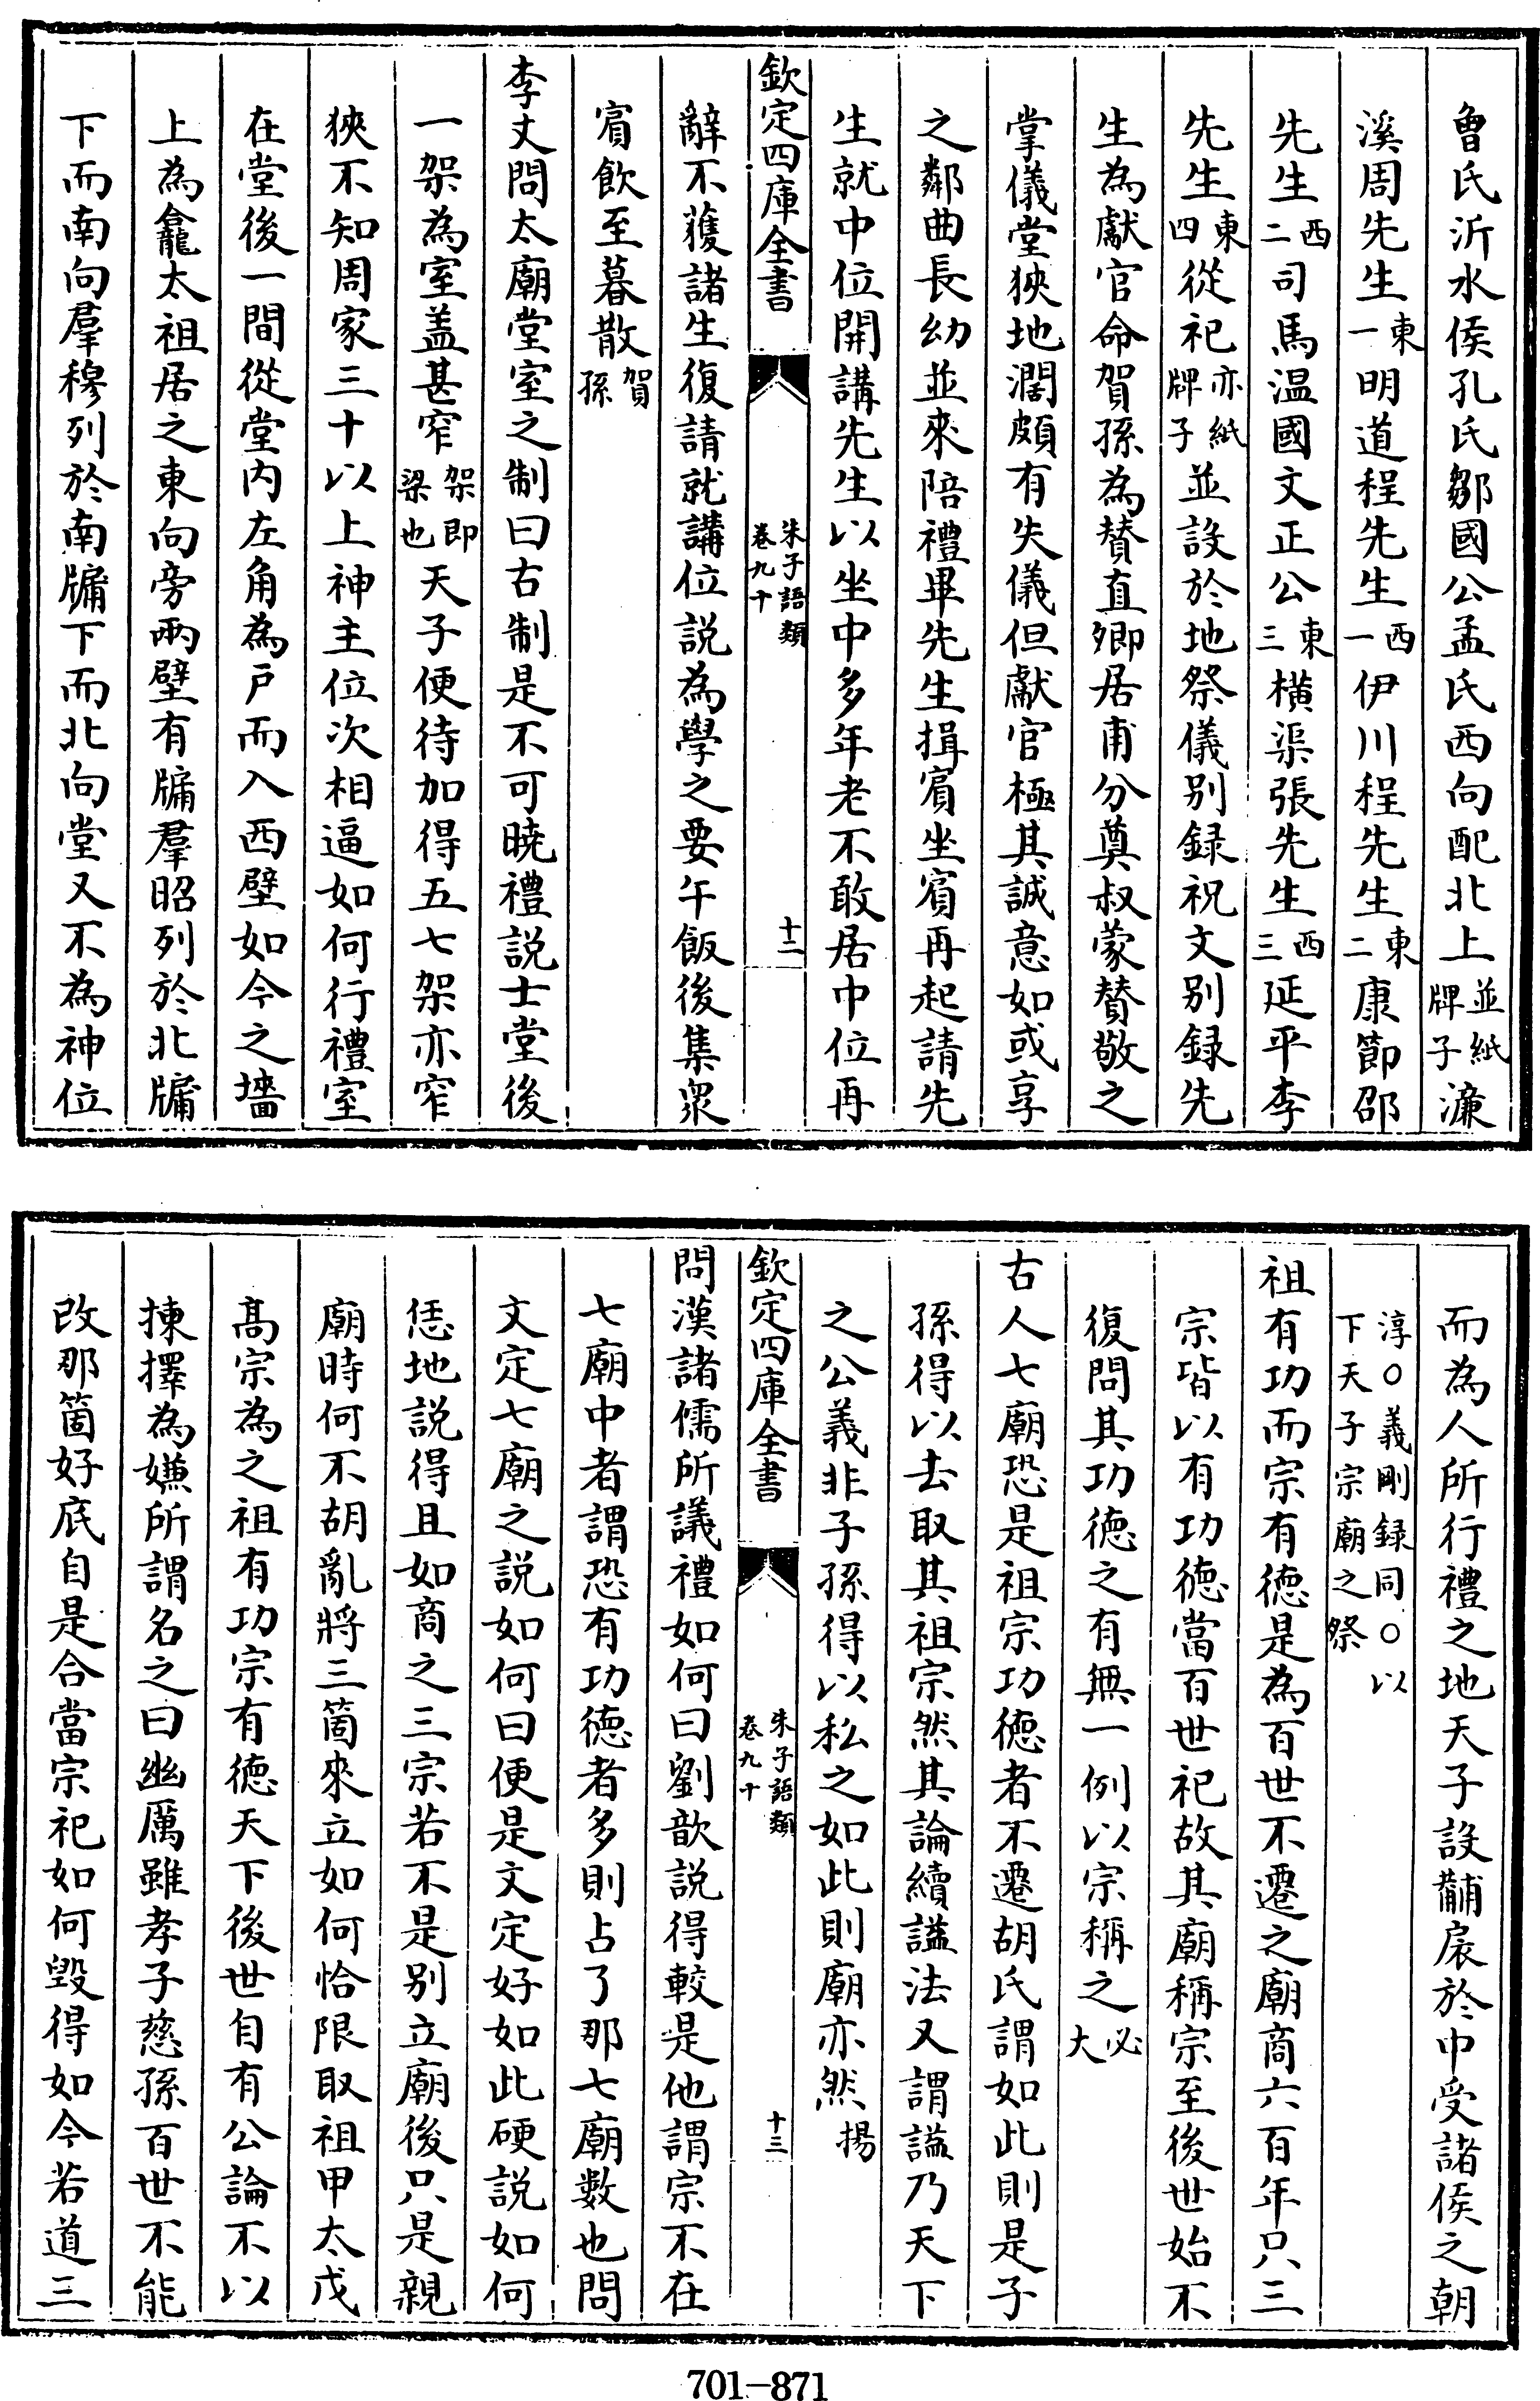 曾氏沂水侯孔氏鄒國公孟氏西向配北上並紙牌子濂
溪周先生東一明道程先生西一伊川程先生東二康節邵
先生西二司馬温國文正公東三横渠張先生西三延平李
先生東四從祀亦紙牌子並設於地祭儀别録祝文别録先
生為獻官命賀孫為賛直卿居甫分奠叔蒙賛敬之
掌儀堂狹地濶頗有失儀但獻官極其誠意如或享
之鄰曲長幼並來陪禮畢先生揖賔坐賔再起請先
生就中位開講先生以坐中多年老不敢居中位再
欽定四庫全書
朱子語類
卷九十
十二
辭不獲諸生復請就講位説為學之要午飯後集衆
賔飲至暮散賀孫
李丈問太廟堂室之制曰古制是不可曉禮説士堂後
一架為室盖甚窄架即梁也天子便待加得五七架亦窄
狹不知周家三十以上神主位次相逼如何行禮室
在堂後一間從堂内左角為戸而入西壁如今之墻
上為龕太祖居之東向旁兩壁有牖羣昭列於北牖
下而南向羣穆列於南牖下而北向堂又不為神位
而為人所行禮之地天子設黼扆於中受諸侯之朝
淳○義剛録同○以
下天子宗廟之祭
祖有功而宗有徳是為百世不遷之廟商六百年只三
宗皆以有功徳當百世祀故其廟稱宗至後世始不
復問其功徳之有無一例以宗稱之必大
古人七廟恐是祖宗功徳者不遷胡氏謂如此則是子
孫得以去取其祖宗然其論續諡法又謂諡乃天下
之公義非子孫得以私之如此則廟亦然揚
欽定四庫全書
朱子語類
卷九十
十三
問漢諸儒所議禮如何曰劉歆説得較是他謂宗不在
七廟中者謂恐有功徳者多則占了那七廟數也問
文定七廟之説如何曰便是文定好如此硬説如何
恁地説得且如商之三宗若不是别立廟後只是親
廟時何不胡亂將三箇來立如何恰限取祖甲太戊
髙宗為之祖有功宗有徳天下後世自有公論不以
揀擇為嫌所謂名之曰幽厲雖孝子慈孫百世不能
改那箇好底自是合當宗祀如何毀得如今若道三
701-871